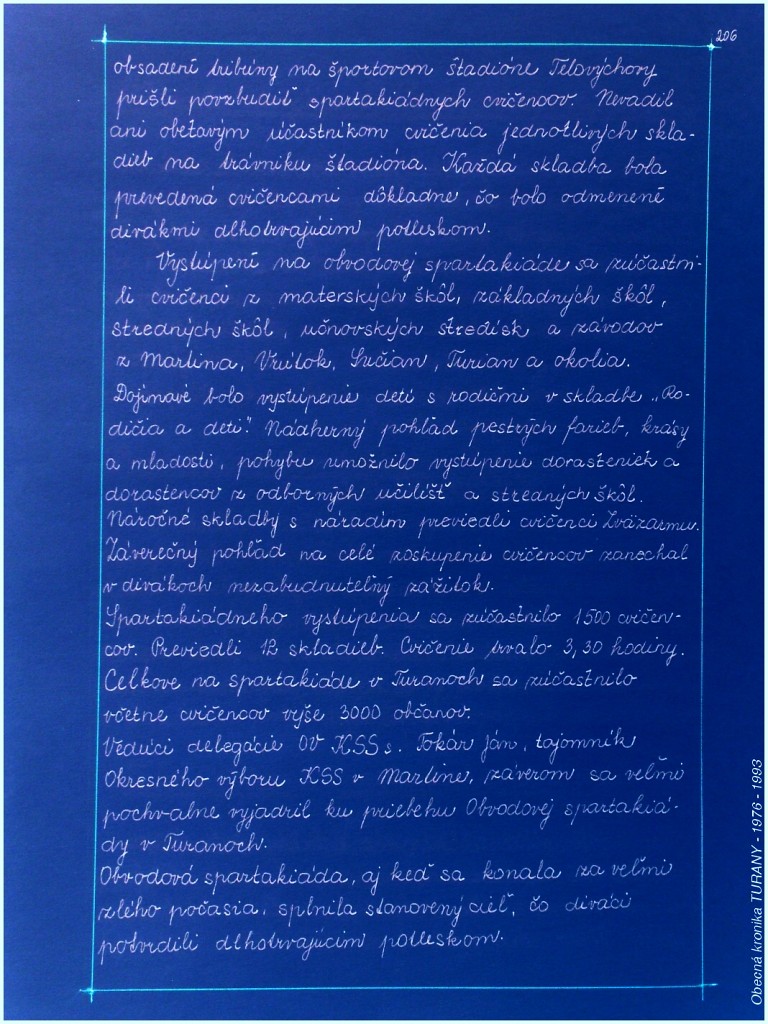 206
obsadení tribúny na športovom štadióne Telovýchovy
prišli povzbudiť spartakiádnych cvičencov. Nevadil
ani obetavým účastníkom cvičenia jednotlivých skla-
dieb na trávniku štadióna. Každá skladba bola
prevedená cvičencami dôkladne, čo bolo odmenené
divákmi dlhotrvajúcim potleskom.
Vystúpení na obvodovej spartakiáde sa zúčastni-
li cvičenci z materských škôl, základných škôl,
stredných škôl, učňovských stredísk a závodov
z Martina, Vrútok, Sučian, Turian a okolia.
Dojímavé bolo vystúpenie detí s rodičmi v skladbe „Ro-
dičia a deti." Nádherný pohľad pestrých farieb, krásy
a mladosti, pohybu umožnilo vystúpenie dorasteniek a
dorastencov z odborných učilíšť a stredných škôl.
Náročné skladby s náradím previedli cvičenci Zväzarmu.
Záverečný pohľad na celé zoskupenie cvičencov zanechal
v divákoch nezabudnuteľný zážitok.
Spartakiádneho vystúpenia sa zúčastnilo 1500 cvičen-
cov. Previedli 12 skladieb. Cvičenie trvalo 3,30 hodiny.
Celkove na spartakiáde v Turanoch sa zúčastnilo
včetne cvičencov vyše 3000 občanov.
Vedúci delegácie OV KSS s. Tokár Ján, tajomník
Okresného výboru KSS v Martine, záverom sa veľmi
pochvalne vyjadril ku priebehu Obvodovej spartakiá-
dy v Turanoch.
Obvodová spartakiáda, aj keď sa konala za veľmi
zlého počasia, splnila stanovený cieľ, čo diváci
potvrdili dlhotrvajúcim potleskom.
Obecná kronika TURANY - 1976 - 1993